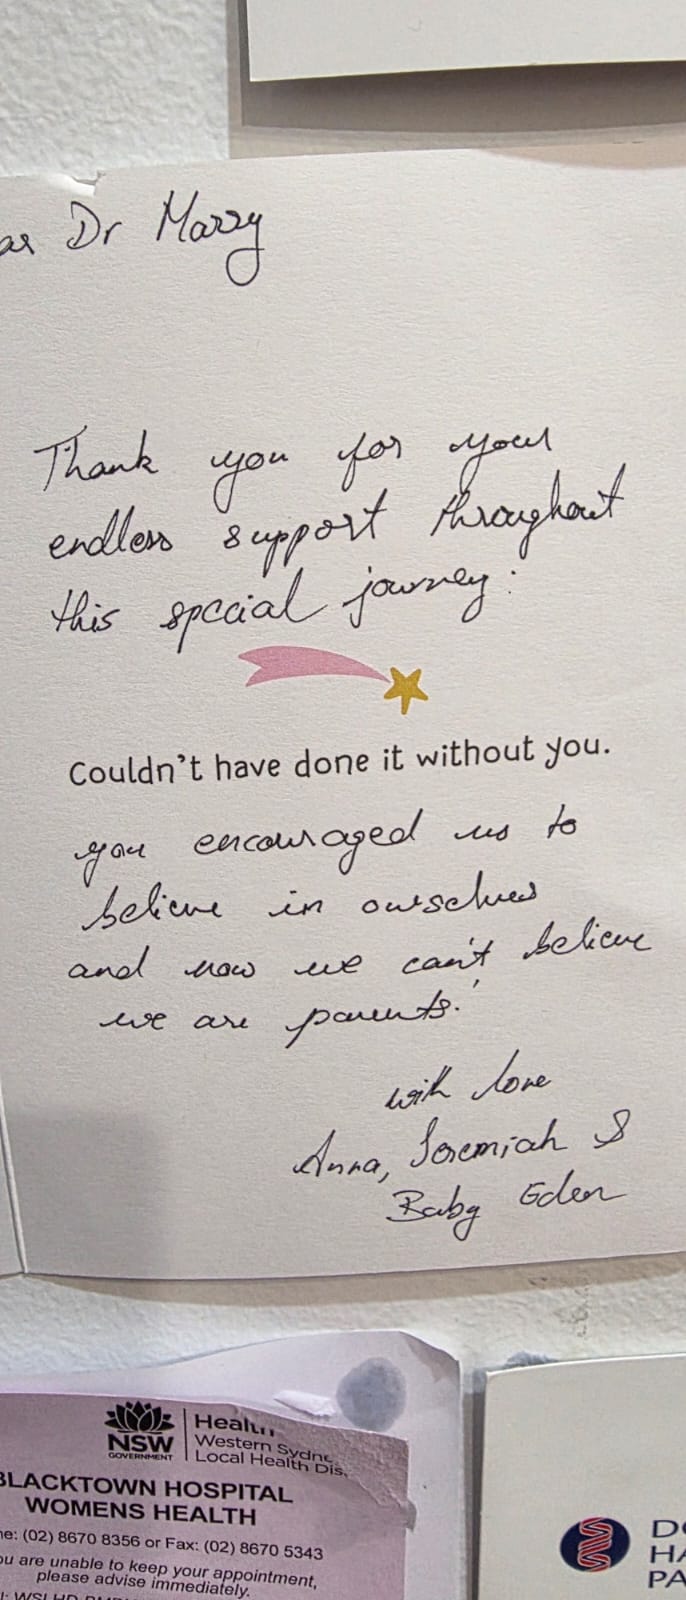 Dr Marry
Thank you for your
endless support throughout
this special journey.
Couldn't have done it without you.
you encouraged us to
believe in ourselves
and now we can't believe
we are parents!
with love
Anna, Jeremiah &
Baby Eden
NSW
GOVERNMENT
Health
Western Sydne
Local Health Dis
BLACKTOWN HOSPITAL
WOMENS HEALTH
ne: (02) 8670 8356 or Fax: (02) 8670 5343
ou are unable to keep your appointment,
please advise immediately.
HA
PA